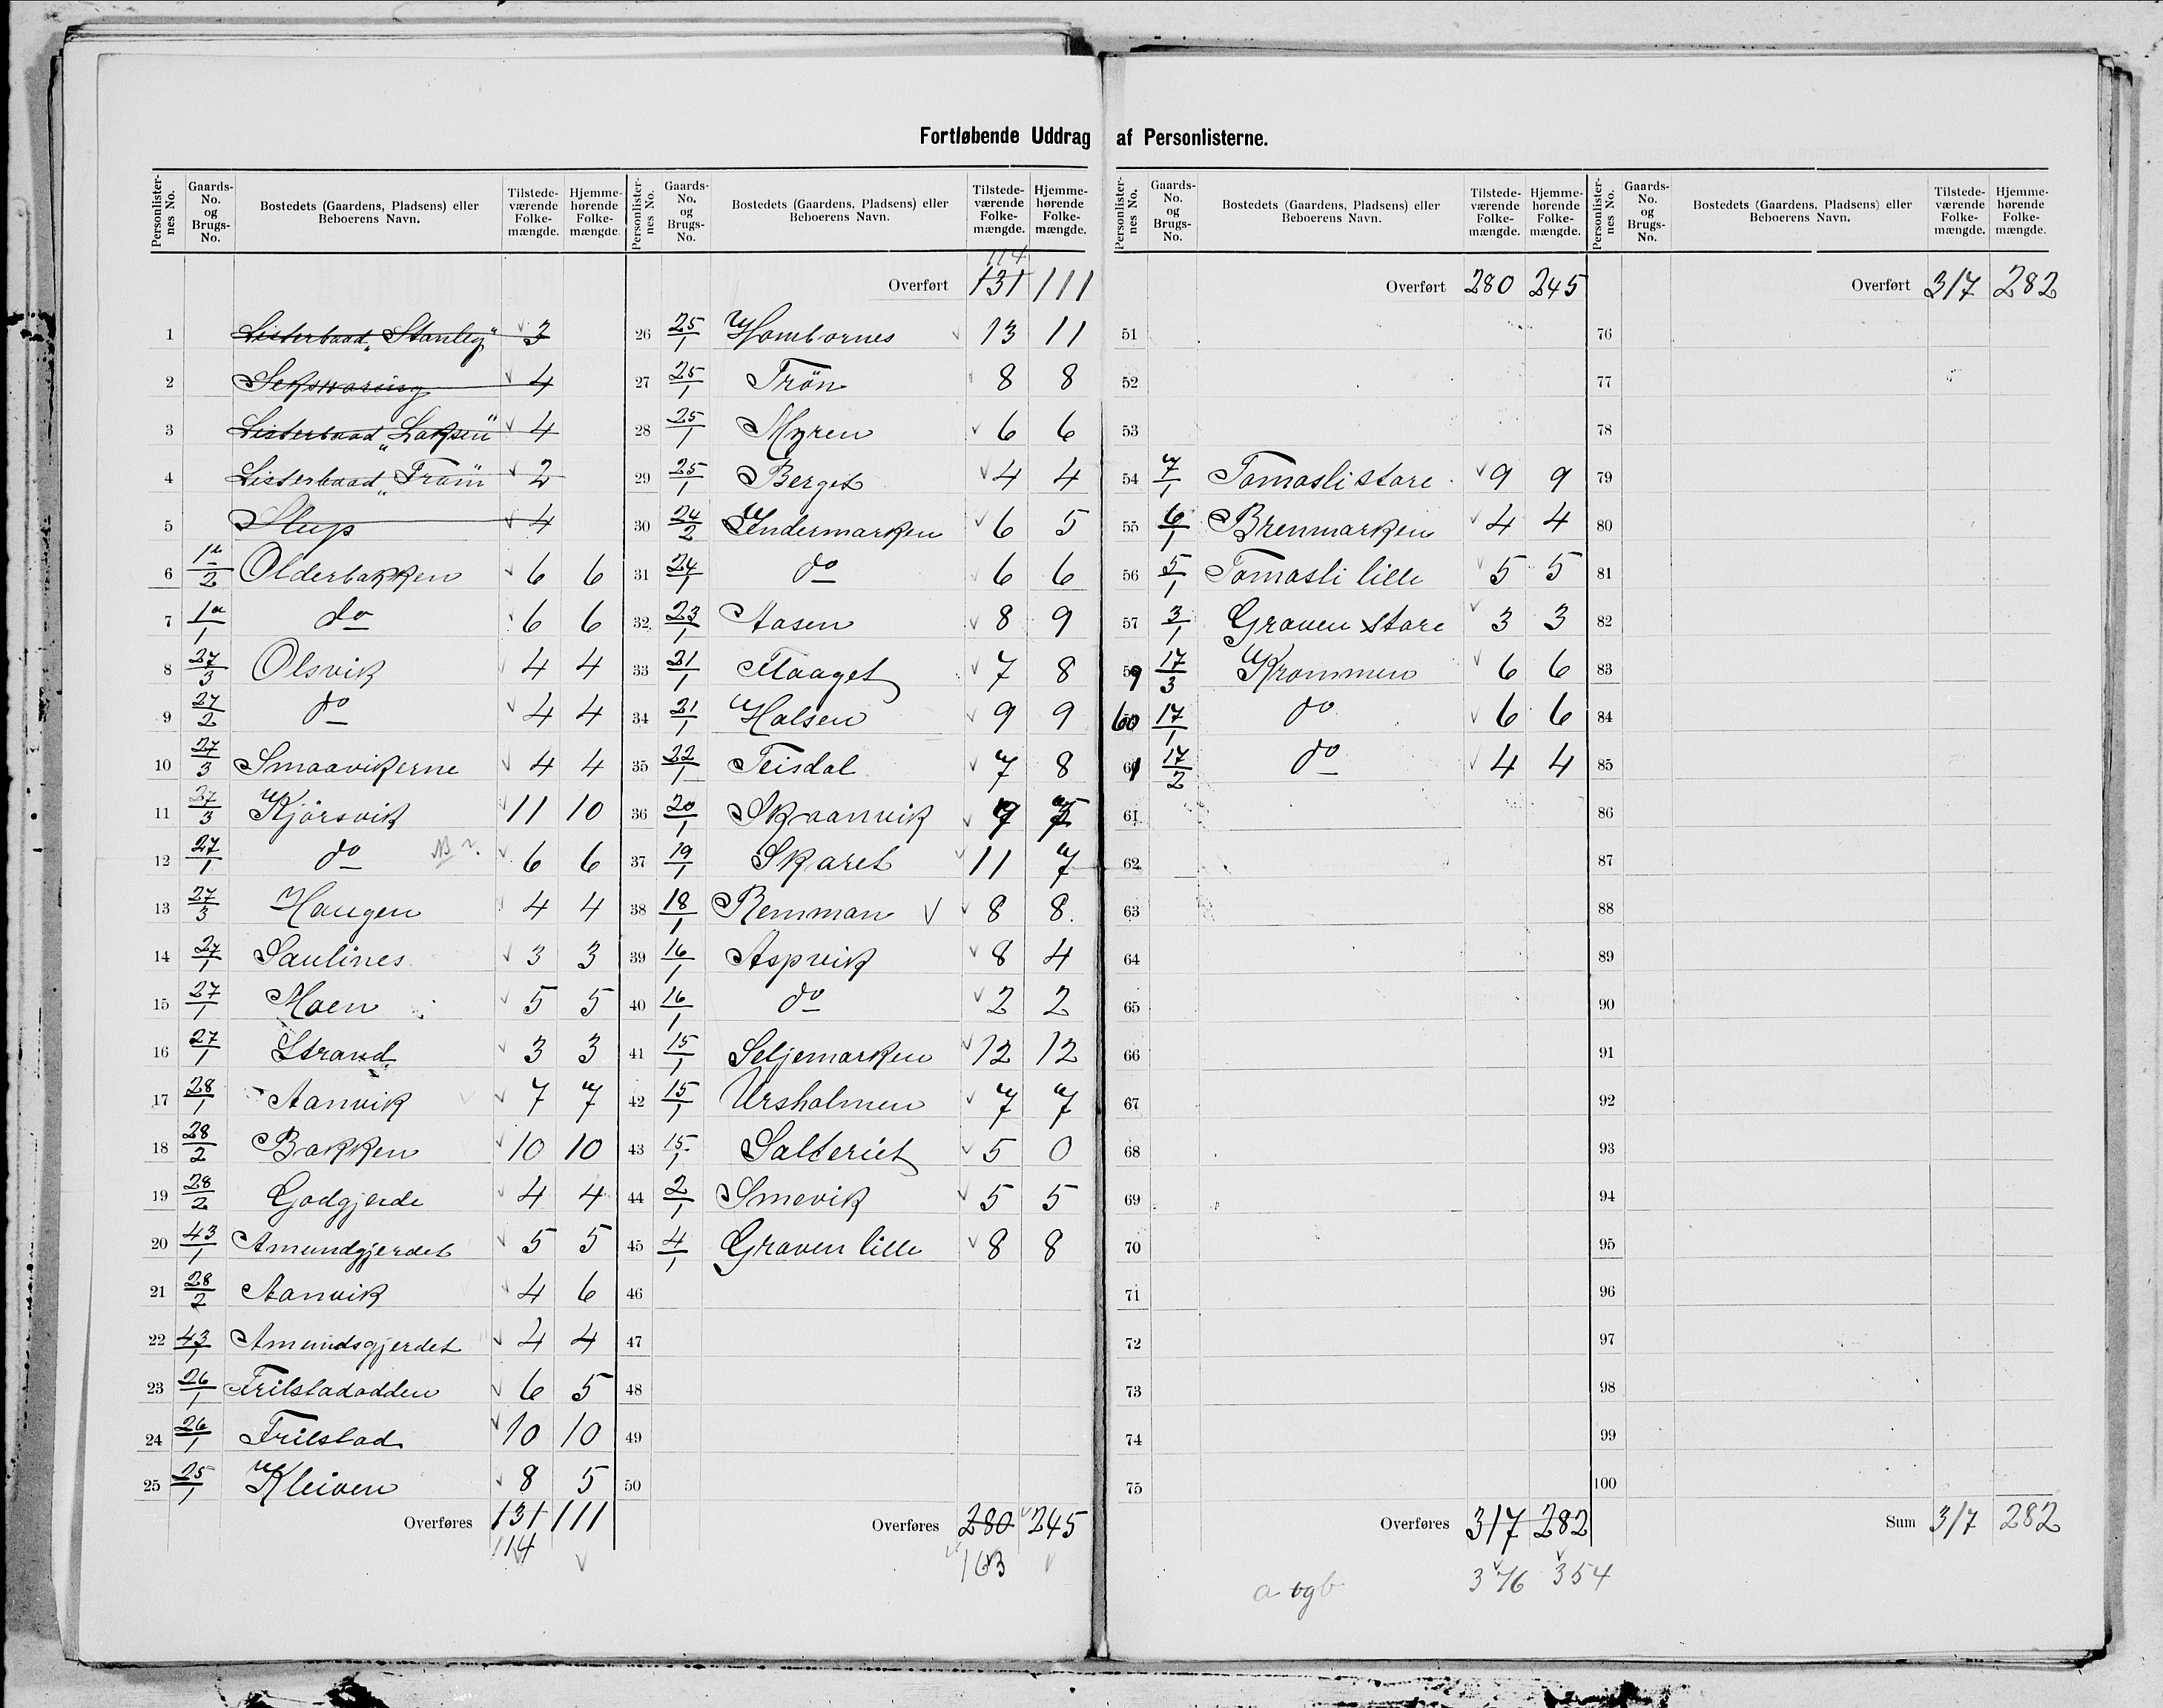 Fortløbende Uddrag af Personlisterne.
Personlisternes No. | Gaards-No. og Brugs-No. | Bostedets (Gaardens, Pladsens) eller Beboerens Navn. | Tilstedeværende Folkemængde. | Hjemmehørende Folkemængde.
1 Listerbaad „Stanley" 3
2 4
3 Listerbaad „Laksen" 4
4 Listerbaad „Fram" 2
5 Slup 4
6 2 Olderbakken 6 6
7 1a/1 do 6 6
8 27/3 Olsvik 4 4
9 27/2 do 4 4
10 27/3 Smaavikerne 4 4
11 27/3 Kjørsvik 11 10
12 27/1 do 6 6
13 27/3 Haugen 4 4
14 27/1 Saulines 3 3
15 27/1 Moen 5 5
16 27/1 Strand 3 3
17 28/1 Aanvik 7 7
18 28/2 Bakken 10 10
19 28/2 Godgjerde 4 4
20 43/1 Amundgjerdet 5 5
21 28/2 Aanvik 4 6
22 43/1 Amundsgjerdet 4 4
23 26/1 Frilstadodden 6 5
24 26/1 Frilstad 10 10
25 25/1 Kleiven 8 5
Overføres 131 111
114
Personlisternes No. | Gaards-No. og Brugs-No. | Bostedets (Gaardens, Pladsens) eller Beboerens Navn. | Tilstedeværende Folkemængde. | Hjemmehørende Folkemængde.
114
Overført 131 111
26 25/1 Hombornes 13 11
27 25/1 Trøn 8 8
28 25/1 Myren 6 6
29 25/1 Berget 4 4
30 24/2 Indermarken 6 5
31 24/1 do 6 6
32 23/1 Aasen 8 9
33 21/1 Flaaget 7 8
34 21/1 Halsen 9 9
35 22/1 Teisdal 7 8
36 20/1 Skaanvik 9 7
37 19/1 Skaret 11 7
38 18/1 Remman V 8 8
39 16/1 Aspvik 8 4
40 16/1 do 2 2
41 15/1 Seljemarken 12 12
42 15/1 Ursholmen 7 7
43 15/1 Salteriet 5 0
44 2/1 Smevik 5 5
45 4/1 Graven lille 8 8
46
47
48
49
50
Overføres 280 245
163
Personlisternes No. | Gaards-No. og Brugs-No. | Bostedets (Gaardens, Pladsens) eller Beboerens Navn. | Tilstedeværende Folkemængde. | Hjemmehørende Folkemængde.
Overført 280 245
51
52
53
54 7/1 Tomasli store 9 9
55 6/1 Brenmarken 4 4
56 5/1 Tomasli lille 5 5
57 3/1 Graven store 3 3
59 17/3 Krommen 6 6
60 17/1 do 6 6
61 17/2 do 4 4
61
62
63
64
65
66
67
68
69
70
71
72
73
74
75
Overføres 317 282
a og b 376 354
Personlisternes No. | Gaards-No. og Brugs-No. | Bostedets (Gaardens, Pladsens) eller Beboerens Navn. | Tilstedeværende Folkemængde. | Hjemmehørende Folkemængde.
Overført 317 282
76
77
78
79
80
81
82
83
84
85
86
87
88
89
90
91
92
93
94
95
96
97
98
99
100
Sum 317 282